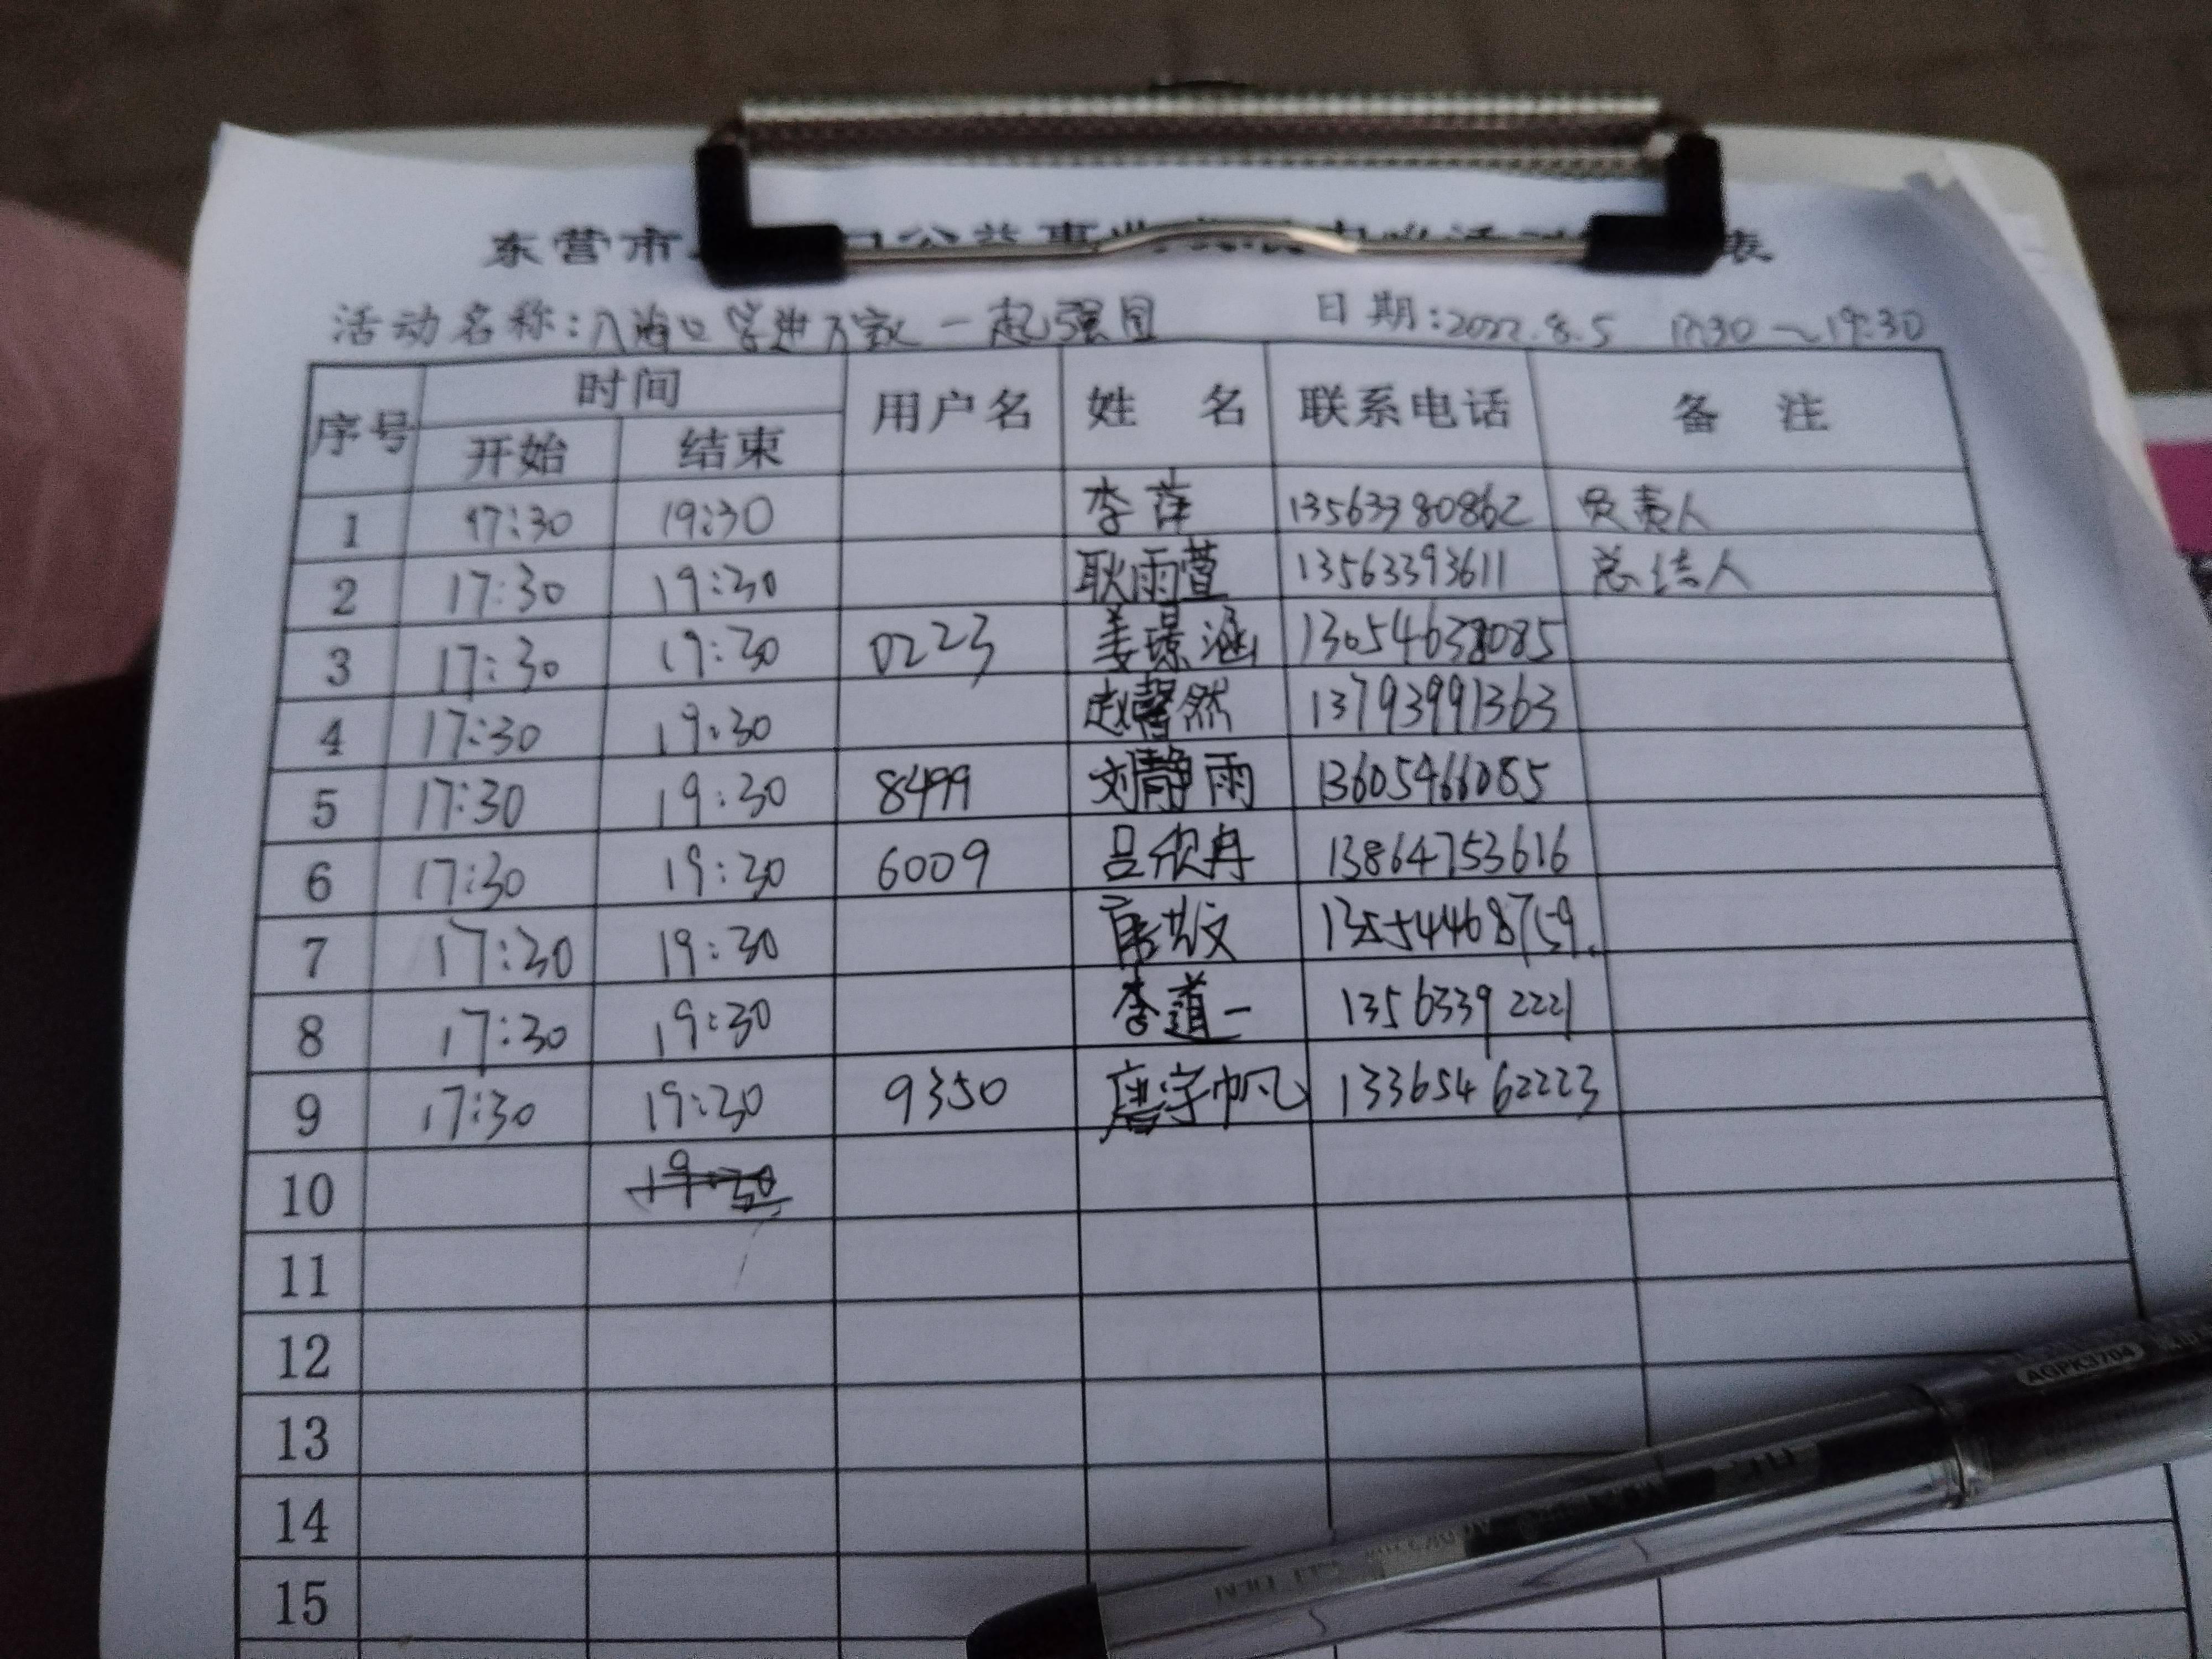 东营市
公益事业
表
活动名称:入海口学进万家一起强国 日期:2022.8.5 17:30~19:30
序号 时间 用户名 姓 名 联系电话 备 注
开始 结束
1 17:30 19:30 李萍 13563380862 负责人
2 17:30 19:30 耿雨萱 13563393611 总结人
3 17:30 19:30 0223 姜璟涵 13054638085
4 17:30 19:30 赵馨然 13793991363
5 17:30 19:30 8499 刘静雨 13605466085
6 17:30 19:30 6009 吕欣冉 13864753616
7 17:30 19:30
8 17:30 19:30 李道一 13563392221
9 17:30 19:30 9350 唐宇帆 13365462223
10 19:30
11
12
13
14
15
AGPK3704